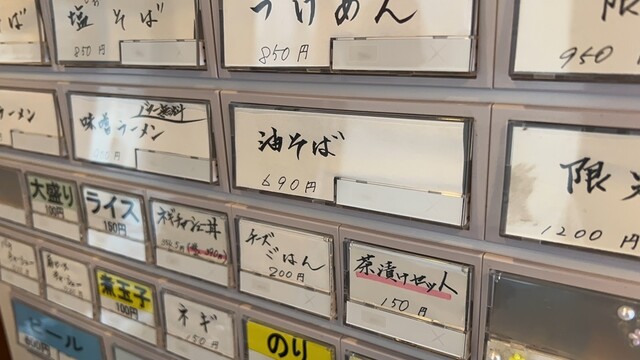 そば
塩そば
850円
つけめん
850円
限
950円
ーメン
味噌ラーメン
油そば
690円
限
1200円
大盛り
100円
ライス
150円
ネギチャーシュー丼
チーズ
ごはん
200円
茶漬けセット
150円
煮玉子
100円
ネギ
150円
のり
ビール